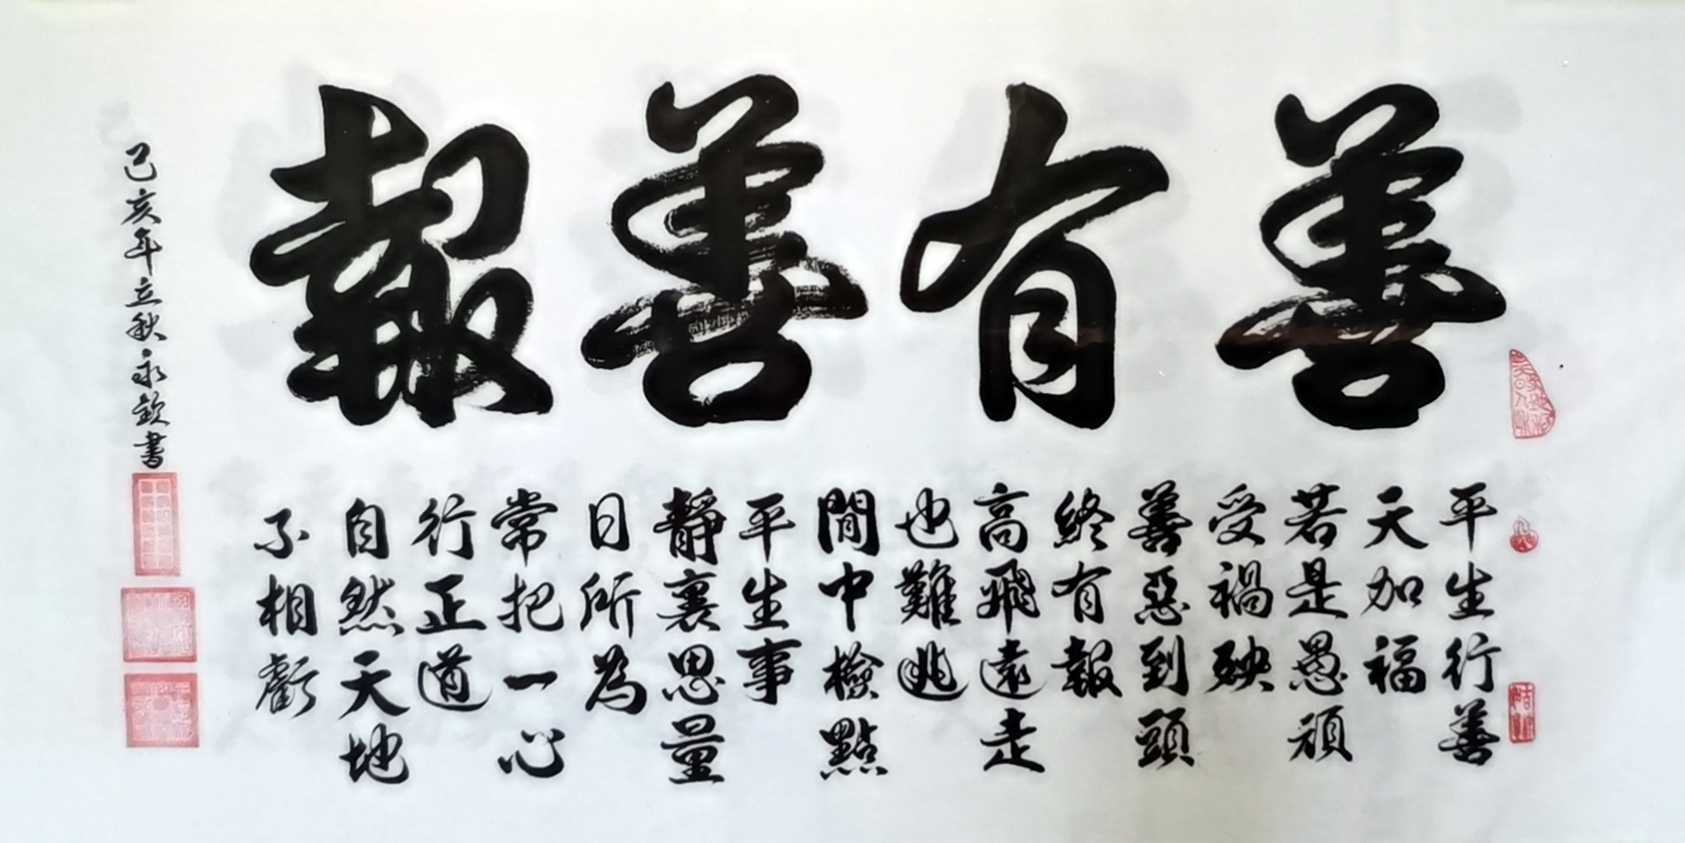 善有善報
平生行善
天加福
若是愚頑
受禍殃
善惡到頭
終有報
高飛遠走
也難逃
閒中檢點
平生事
靜裏思量
日所為
常把一心
行正道
自然天地
不相虧
己亥年立秋永欽書